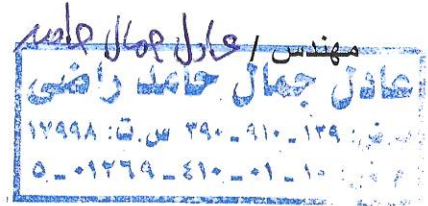 مهندس / عادل جمال حامد
عادل جمال حامد راضى
١٣٩ - ٩١٠ - ٣٩٠ س.ت: ١٧٩٩٨
٥ - ٠١٢٦٩ - ٤١٠ - ٠١ - ١٠